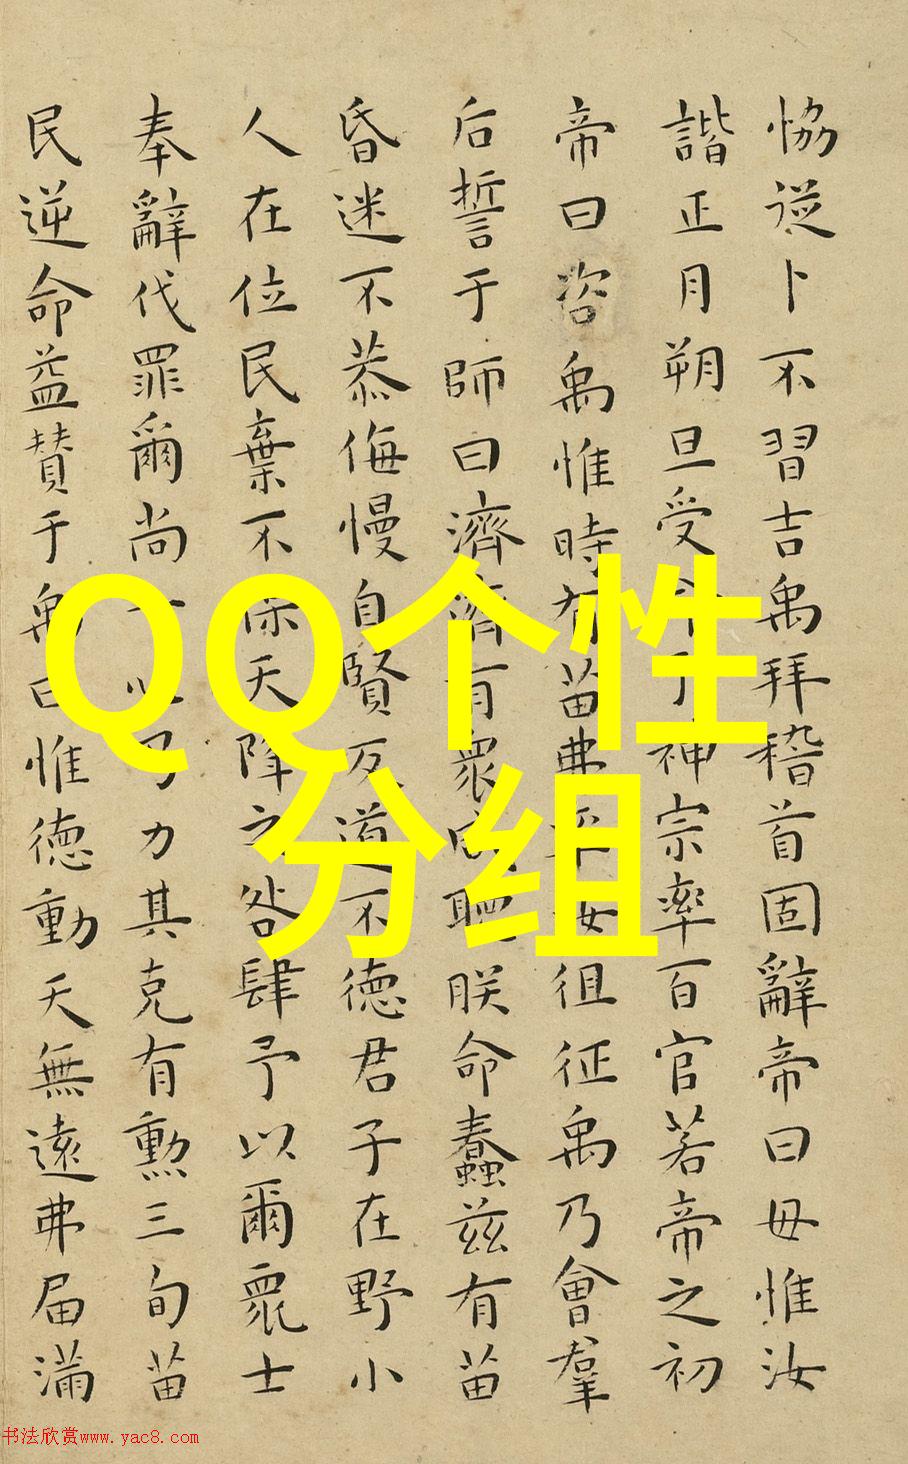 恊從卜不習吉禹拜稽首固辭帝曰毋惟汝
諧正月朔旦受命于神宗率百官若帝之初
帝曰咨禹惟時有苗弗率汝徂征禹乃會羣
后誓于師曰濟濟有衆咸聽朕命蠢兹有苗
昏迷不恭侮慢自賢反道不德君子在野小
人在位民棄不保天降之咎肆予以爾衆士
奉辭伐罪爾尚一心乃力其克有勳三旬苗
民逆命益贊于禹曰惟德動天無遠弗届滿
QQ个性
分组
书法欣赏www.yac8.com